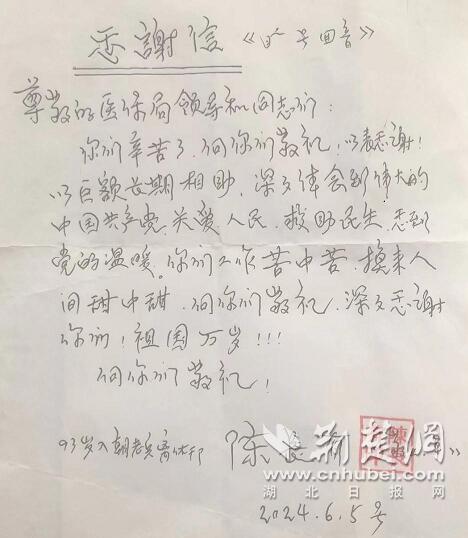 感謝信 《回音》
尊敬的医保局领导和同志们：
你们辛苦了，向你们敬礼，以表感谢！
以巨额长期相助，深深体会到伟大的
中国共产党，关爱人民，救助民生，感到
党的温暖。你们工作苦中苦，换来人
间甜中甜，向你们敬礼，深深感谢
你们！祖国万岁！！！
向你们敬礼！
93岁入朝老兵离休干 陈
荆楚网
www.cnhubei.com
湖北日报网
2024.6.5号